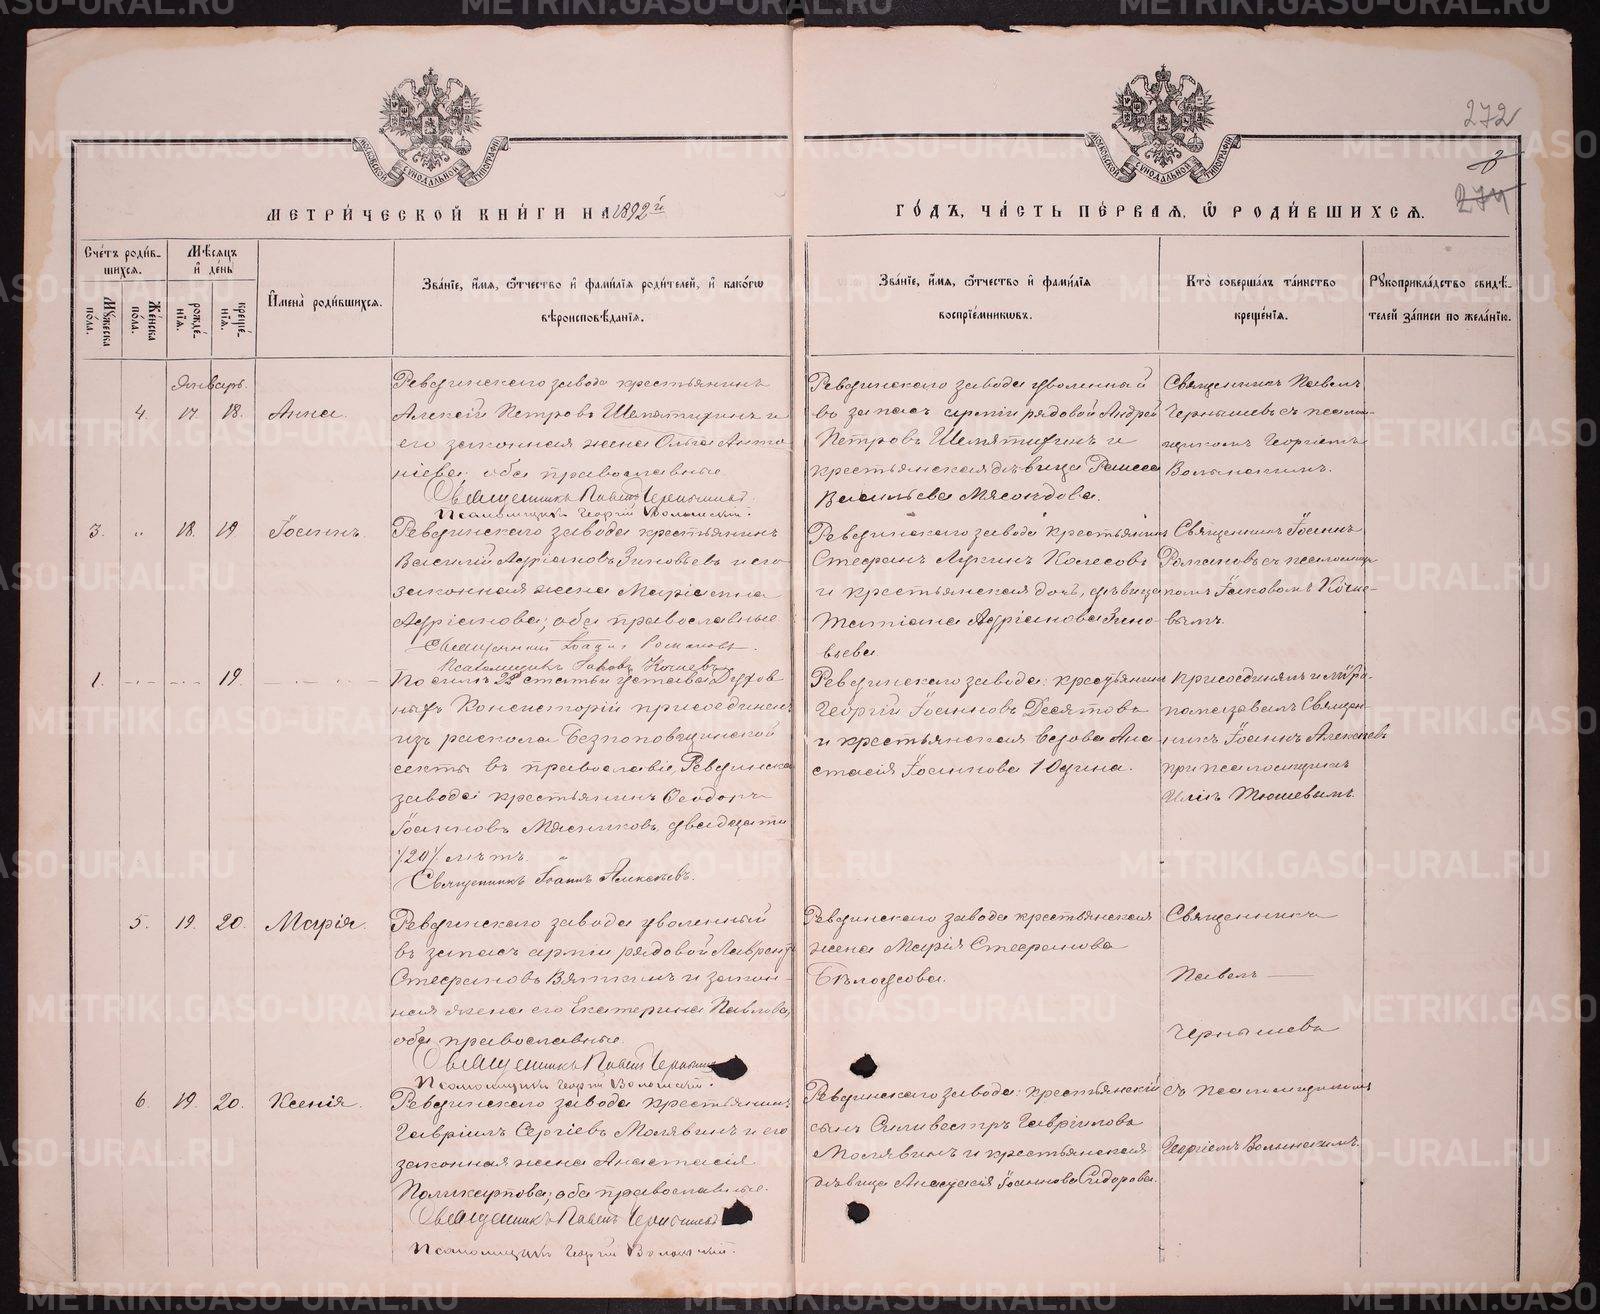 272
3
274
МОСКОВСКОЙ СѴНОДАЛЬНОЙ ТИПОГРАФІИ
МОСКОВСКОЙ СѴНОДАЛЬНОЙ ТИПОГРАФІИ
МЕТРИ́ЧЕСКОЙ КНИ́ГИ НА 1892й
ГО́ДЪ, ЧА́СТЬ ПЕ́РВАЯ, Ѽ РОДИ́ВШИХСЯ.
Сче́тъ роди́в-
шихся.
Мꙋжеска
по́ла.
Же́нска
по́ла.
Мѣ́сяцъ
и҆ де́нь
рожде́-
нїя.
креще́-
нїя.
И҆мена̀ роди́вшихся.
Зва́нїе, и҆́мя, ѻ҆́тчество и҆ фами́лїя роди́телей, и҆ како́гѡ
вѣроисповѣ́данїя.
Зва́нїе, и҆́мя, ѻ҆́тчество и҆ фами́лїя
воспрїе́мникѡвъ.
Кто̀ соверша́лъ та́инство
креще́нїя.
Рꙋкоприкла́дство свидѣ́-
телей за́писи по жела́нїю.
Январь.
4. 17 18. Анна.
Ревдинскаго завода крестьянинъ
Алексій Петровъ Шемятихинъ и
его законная жена Ольга Анто-
ніева, оба православные
Священникъ Павелъ Чернышевъ.
Псаломщикъ Георгій Волынскій.
Ревдинскаго завода уволенный
въ запасъ арміи рядовой Андрей
Петровъ Шемятихинъ и
крестьянская дѣвица Раисса
Васильева Мясоѣдова.
Священникъ Павелъ
Чернышевъ съ псалом-
щикомъ Георгіемъ
Волынскимъ.
3. „ 18. 19 Іоаннъ.
Ревдинскаго завода крестьянинъ
Василій Адріановъ Зиновьевъ и его
законная жена Маріанна
Адріанова; оба православные
Священникъ Іоаннъ Романовъ.
Псаломщикъ Іаковъ Кочневъ
Ревдинскаго завода крестьянинъ
Стефанъ Лукинъ Колесовъ
и крестьянская дочь, дѣвица
Татіана Адріанова Зино-
вьева
Священникъ Іоаннъ
Романовъ съ псаломщи-
комъ Іаковомъ Кочне-
вымъ.
1. 19.
По силѣ 22 статьи устава Духов
ныхъ Консисторій присоединенъ
изъ раскола Безпоповщинской
секты въ православіе, Ревдинска
завода крестьянинъ Ѳеодоръ
Іоанновъ Мясниковъ, двадцати
/20/ лѣтъ.
Священникъ Іоаннъ Алексѣевъ.
Ревдинскаго завода: крестьянин
Георгій Іоанновъ Десятовъ
и крестьянская вдова Ана
стасія Іоаннова Юдина.
Присоединялъ и мѵро-
помазывалъ Священ-
никъ Іоаннъ Алексѣевъ
при псаломщикѣ
Иліѣ Тюшевымъ.
5. 19. 20. Марія.
Ревдинскаго завода уволенный
въ запасъ арміи рядовой Лаврент
Стефановъ Вяткинъ и закон-
ная жена его Екатерина Павлова,
оба православные.
Священникъ Павелъ Чернышевъ
Псаломщикъ Георгій Волынскій.
Ревдинскаго завода крестьянская
жена Марія Стефанова
Бѣлоусова.
Священникъ
Павелъ —
Чернышевъ
6. 19. 20. Ксенія.
Ревдинскаго завода крестьянинъ
Гавріилъ Сергіевъ Молявинъ и его
законная жена Анастасія
Поликарпова; оба православные.
Священникъ Павелъ Чернышевъ
Псаломщикъ Георгій Волынскій.
Ревдинскаго завода: крестьянскій
сынъ Сильвестръ Гавріиловъ
Молявинъ и крестьянская
дѣвица Анастасія Іоаннова Сидорова.
съ псаломщикомъ
Георгіемъ Волынскимъ.
METRIKI.GASO-URAL.RU